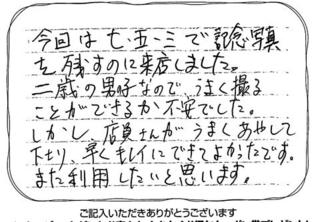 今回は七・五・三で記念写真
を残すのに来店しました。
二歳の男子なので、うまく撮る
ことができるか不安でした。
しかし、店員さんがうまくあやして
下さり、早くキレイにできてよかったです。
また利用したいと思います。
ご記入いただきありがとうございます